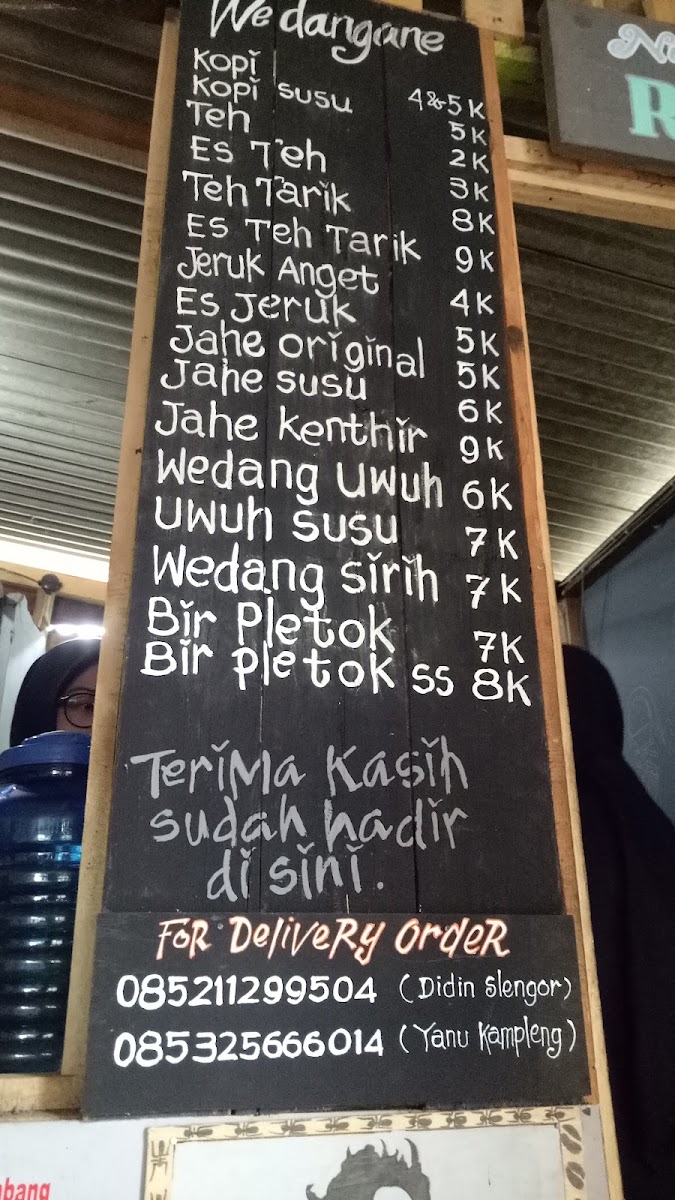 Wedangane
Kopi 4&5K
Kopi susu 5K
Teh 2K
Es Teh 3K
Teh Tarik 8K
Es Teh Tarik 9K
Jeruk Anget 4K
Es Jeruk 5K
Jahe original 5K
Jahe susu 6K
Jahe Kenthir 9K
Wedang Uwuh 6K
Uwuh susu 7K
Wedang Sirih 7K
Bir Pletok 7K
Bir pletok SS 8K
Terima Kasih
sudah hadir
di sini.
FOR DeliveRy OrdeR
085211299504 (Didin Slengor)
085325666014 (Yanu Kampleng)